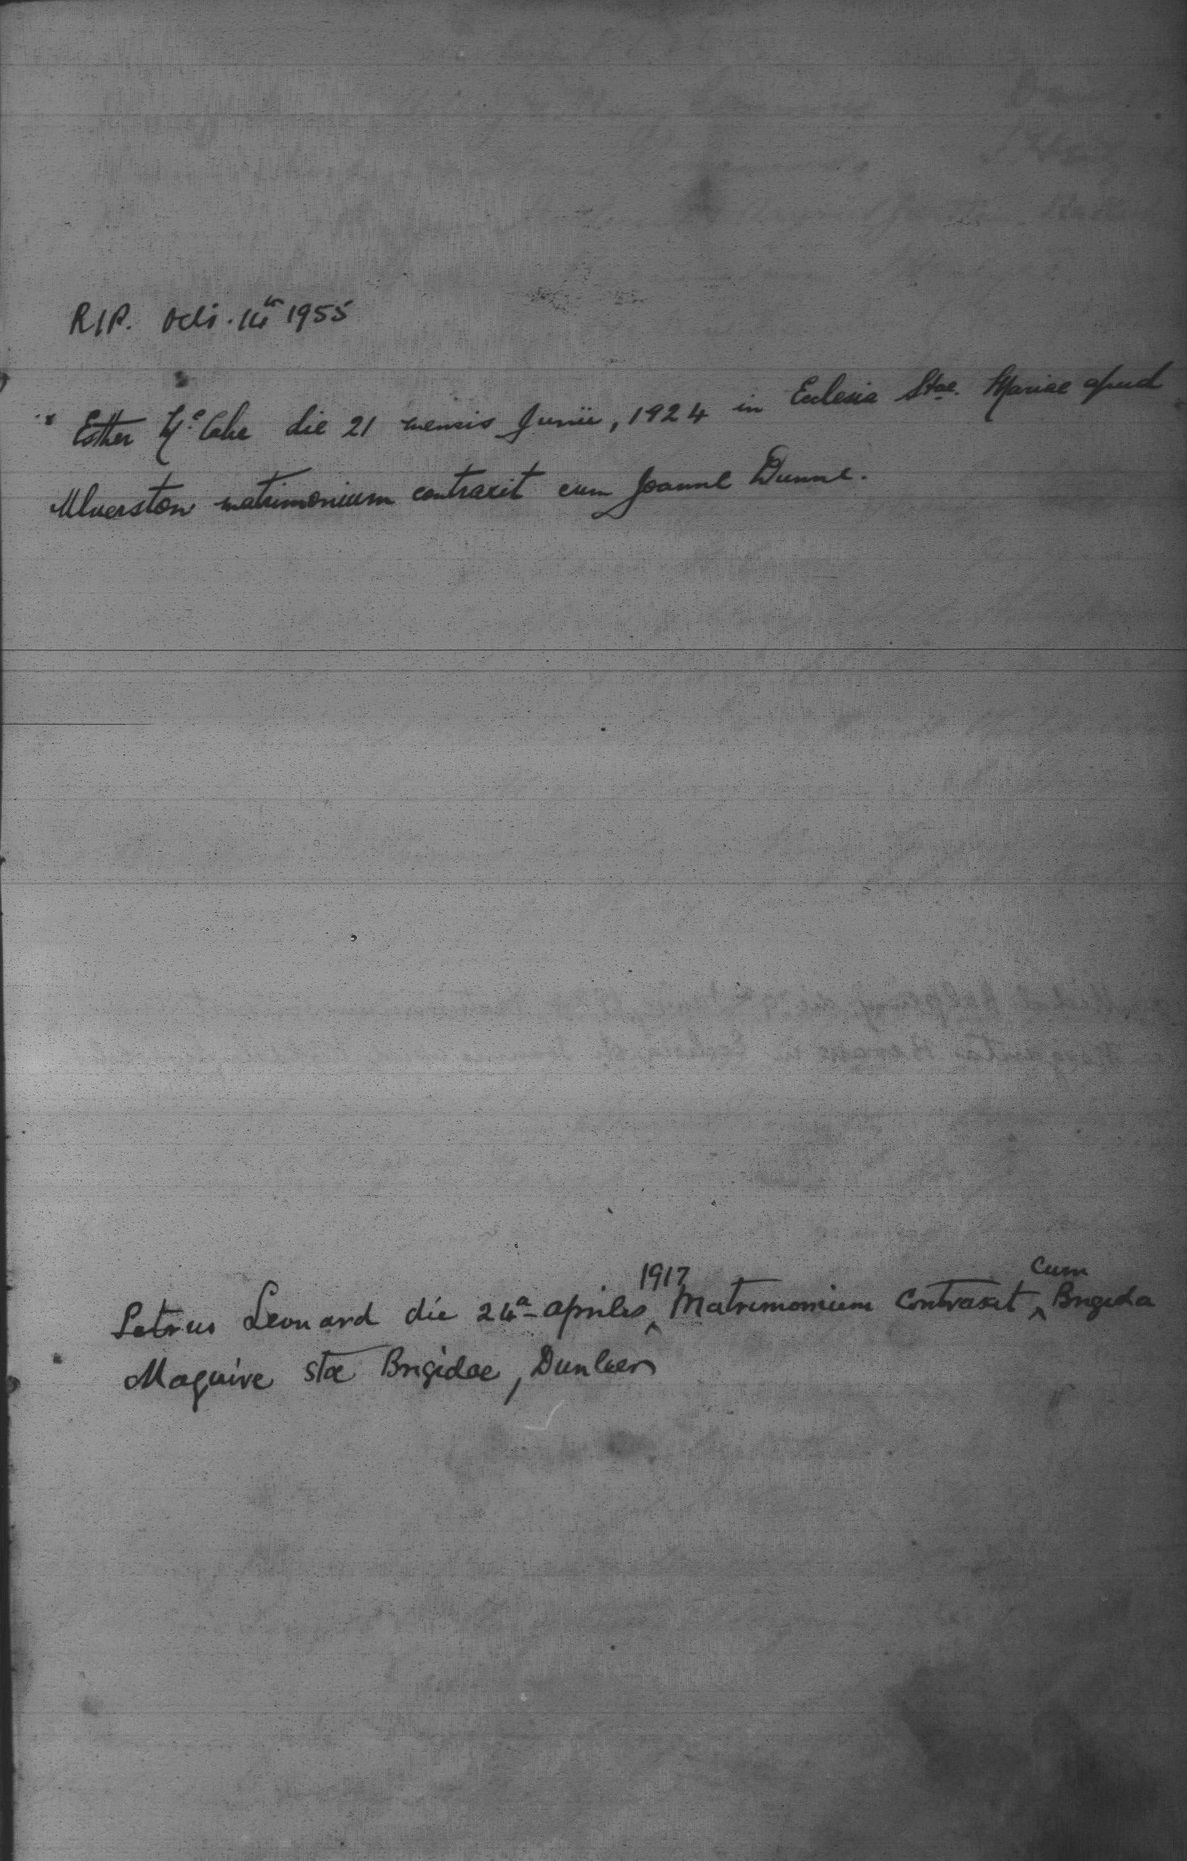 RIP. Oct. 14th 1955
x Esther McCabe die 21 mensis Junii, 1924 in Eclesia Stae. Mariae apud
Ulverston matrimonium contraxit cum Joanne Dunne.
Petrus Leonard die 24a aprilis ^1917 Matrimonium contraxit ^cum Brigida
Maguire stae Brigidae, Dunleer